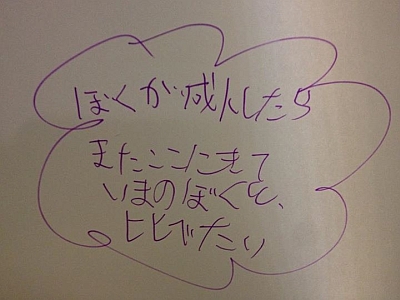 ぼくが成人したら
またここにきて
いまのぼくを、
ヒヒでたい